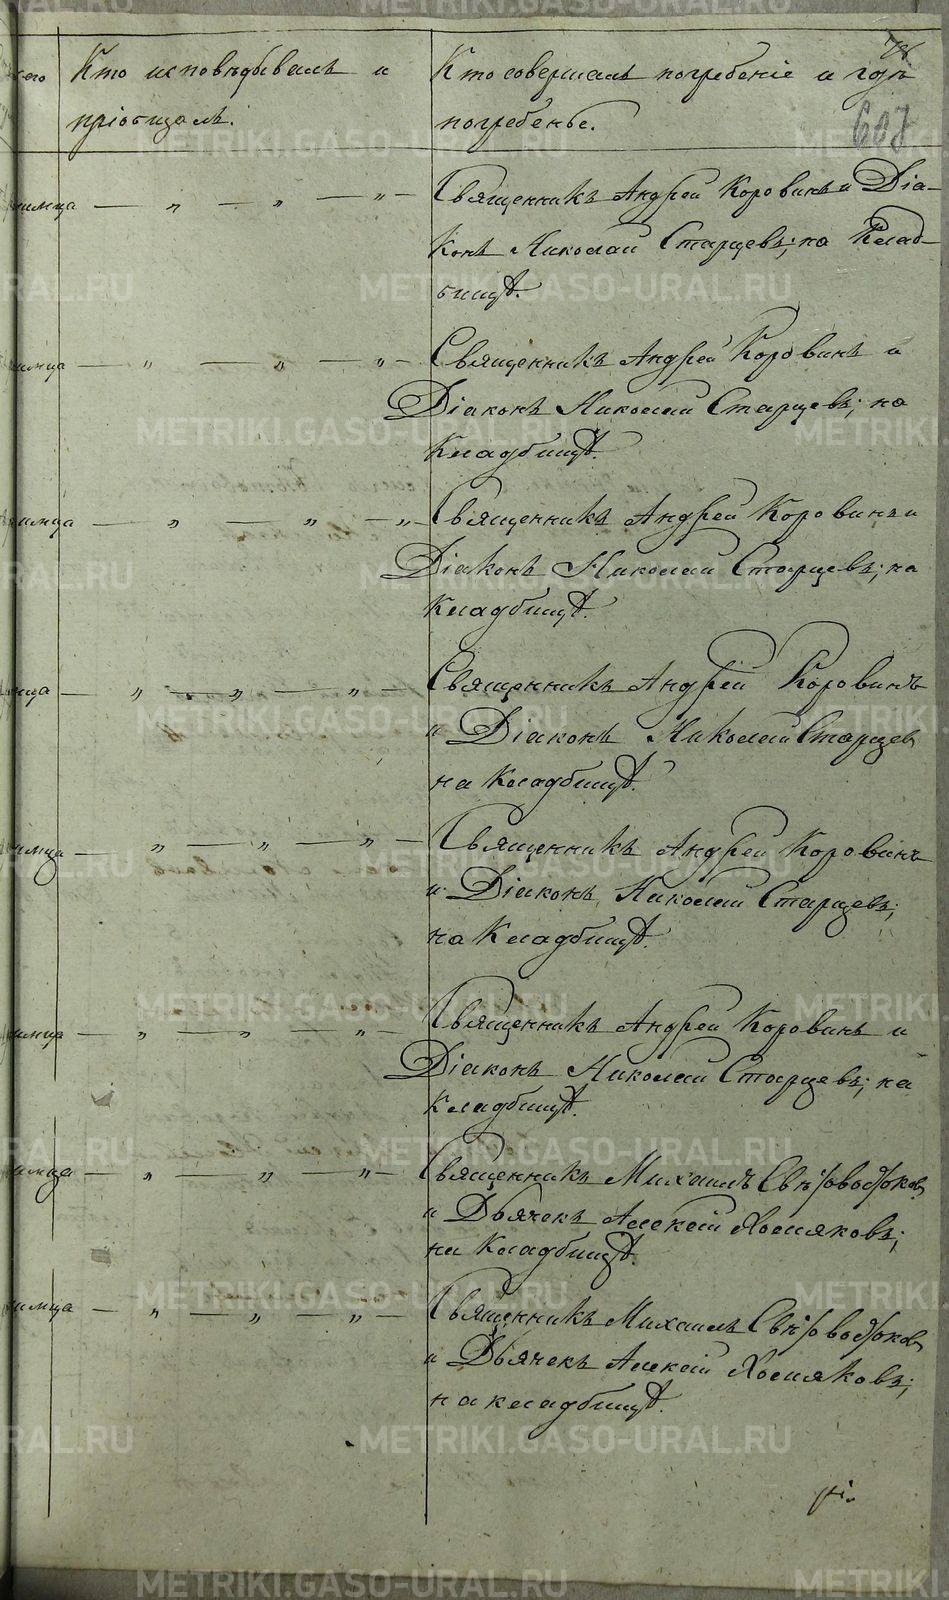 Кто исповѣдывалъ и
пріобщалъ.
Кто совершалъ погребеніе и гдѣ
погребены.
607
Священникъ Андрей Коровинъ и Діа-
конъ Николай Старцевъ; на Клад-
бищѣ.
Священникъ Андрей Коровинъ и
Діаконъ Николай Старцевъ; на
Кладбищѣ.
Священникъ Андрей Коровинъ и
Діаконъ Николай Старцевъ; на
Кладбищѣ.
Священникъ Андрей Коровинъ
и Діаконъ Николай Старцев
на Кладбищѣ.
Священникъ Андрей Коровинъ
и Діаконъ Николай Старцевъ;
на Кладбищѣ.
Священникъ Андрей Коровинъ и
Діаконъ Николай Старцевъ; на
Кладбищѣ.
Священникъ Михаилъ
и Дьячекъ Алексій Хомяковъ;
на Кладбищѣ.
Священникъ Михаилъ
и Дьячекъ Алексій Хомяковъ;
на кладбищѣ.
METRIKI.GASO-URAL.RU